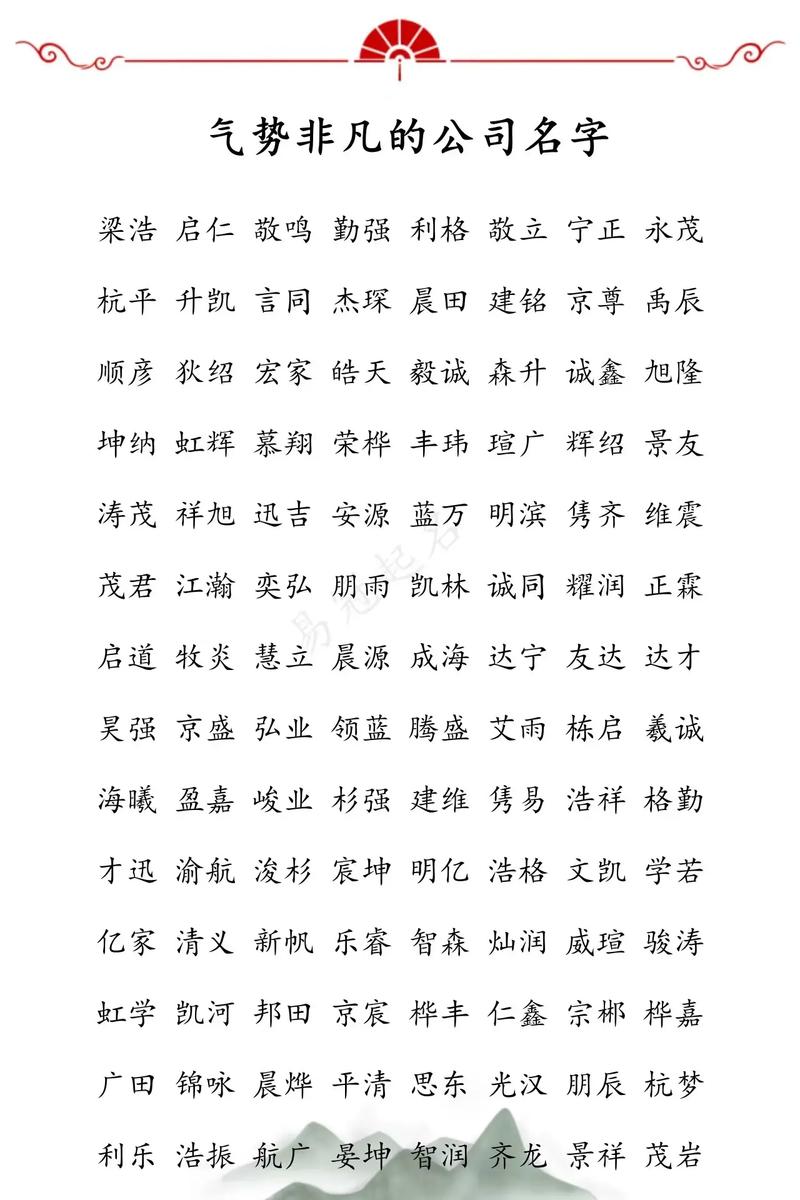 气势非凡的公司名字
梁浩 启仁 敬鸣 勤强 利格 敬立 宁正 永茂
杭平 升凯 言同 杰琛 晨田 建铭 京尊 禹辰
顺彦 狄绍 宏家 皓天 毅诚 森升 诚鑫 旭隆
坤纳 虹辉 慕翔 荣桦 丰玮 瑄广 辉绍 景友
涛茂 祥旭 迅吉 安源 蓝万 明滨 隽齐 维震
茂君 江瀚 奕弘 朋雨 凯林 诚同 耀润 正霖
启道 牧炎 慧立 晨源 成海 达宁 友达 达才
昊强 京盛 弘业 领蓝 腾盛 艾雨 栋启 羲诚
海曦 盈嘉 峻业 杉强 建维 隽易 浩祥 格勤
才迅 渝航 浚杉 宸坤 明亿 浩格 文凯 学若
亿家 清义 新帆 乐睿 智森 灿润 威瑄 骏涛
虹学 凯河 邦田 京宸 桦丰 仁鑫 宗郴 桦嘉
广田 锦咏 晨烨 平清 思东 光汉 朋辰 杭梦
利乐 浩振 航广 晏坤 智润 齐龙 景祥 茂岩
易冠起名